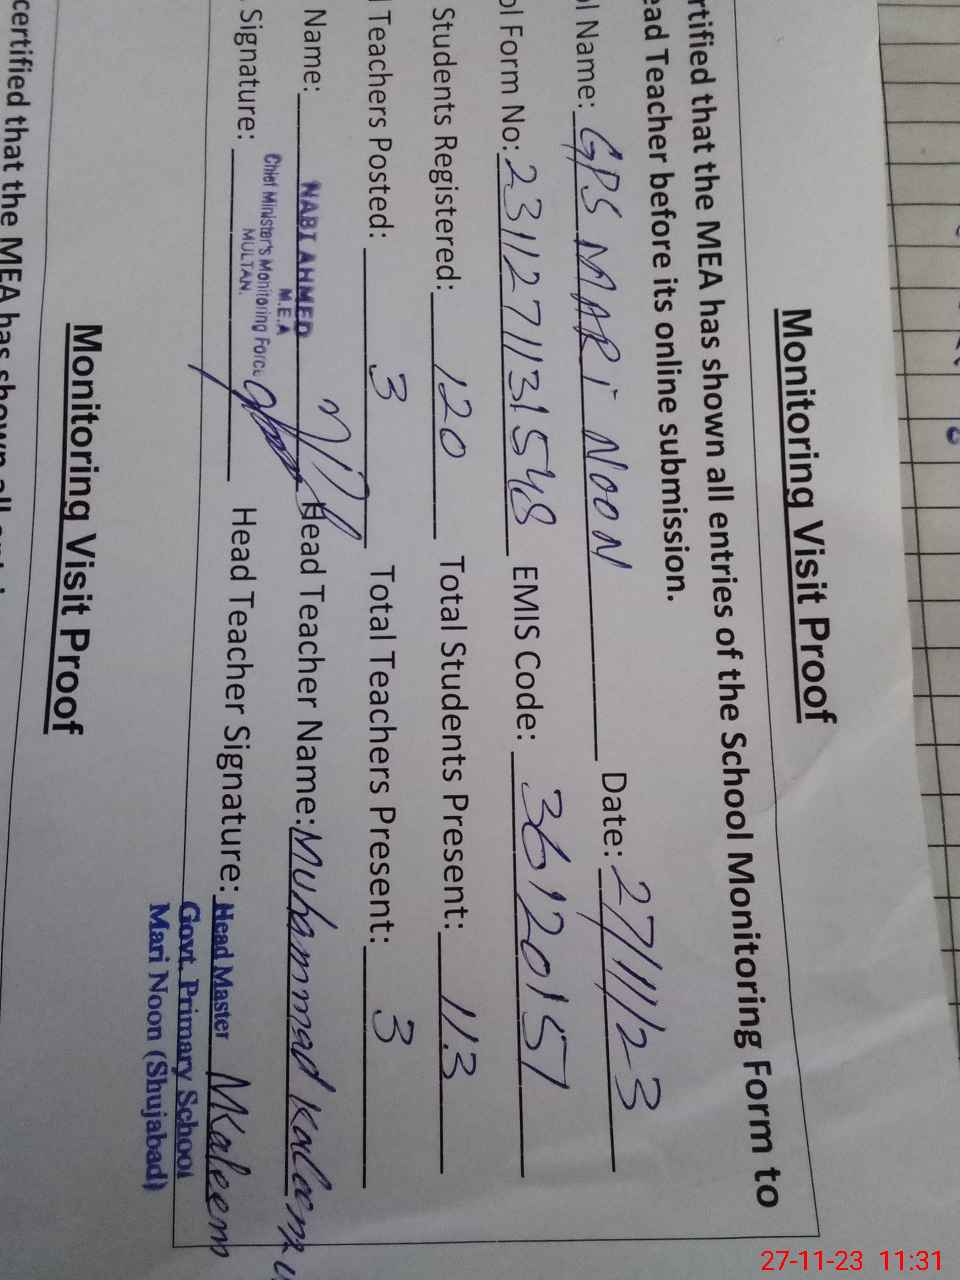 Monitoring Visit Proof
rtified that the MEA has shown all entries of the School Monitoring Form to
ead Teacher before its online submission.
ol Name: GPS MARi NOON Date: 27/11/23
ol Form No: 2311271131548 EMIS Code: 36120157
Students Registered: 120 Total Students Present: 113
l Teachers Posted: 3 Total Teachers Present: 3
Name: NABI AHMED Head Teacher Name: Muhammad Kaleem
M.E.A
Chief Minister's Monitoring Force
MULTAN.
Signature: Head Teacher Signature: MKaleem
Head Master
Govt. Primary School
Mari Noon (Shujabad)
Monitoring Visit Proof
certified that the MEA has shown all
27-11-23 11:31